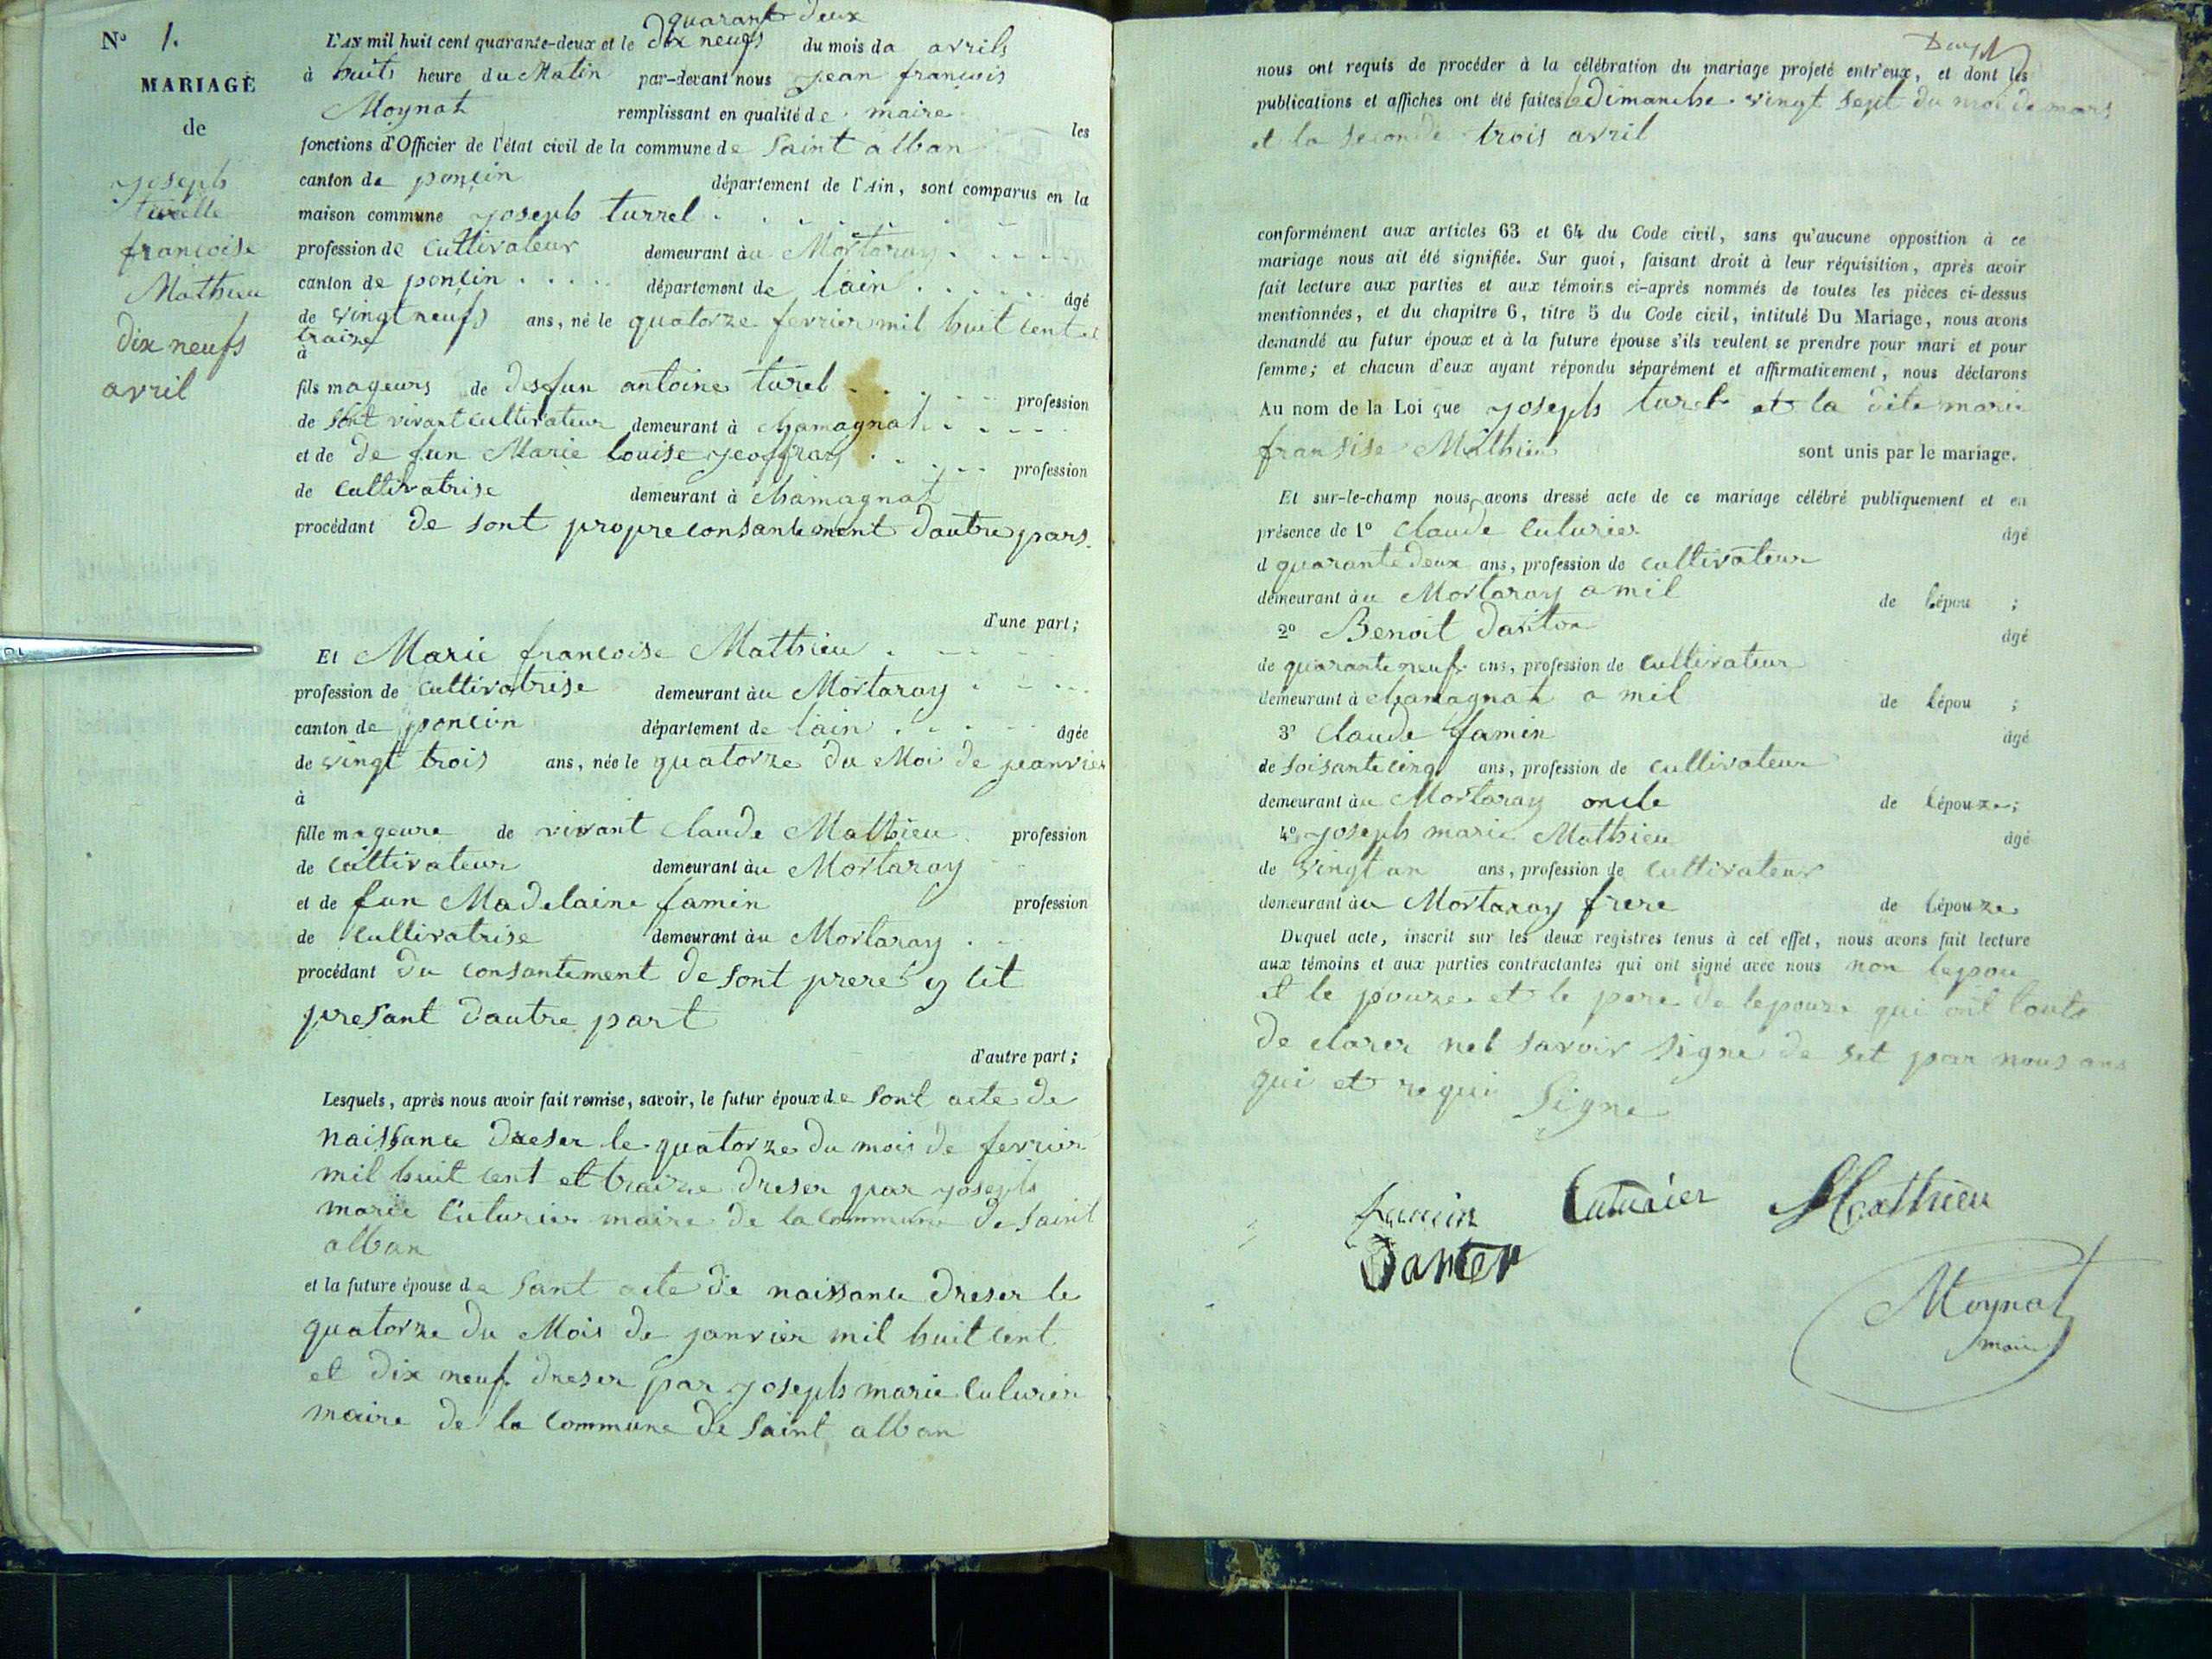 N° 1.
MARIAGE
de
joseph
turelle
francoise
Mathieu
dix neufs
avril
quarante deux
L'AN mil huit cent quarante-deux et le dix neufs du mois da avrils
à huits heure du Matin par-devant nous jean francois
Moynat remplissant en qualité de maire les
fonctions d'Officier de l'état civil de la commune de saint alban
canton de poncin département de l'Ain, sont comparus en la
maison commune joseph turrel
profession de cultivateur demeurant au Mortaray
canton de poncin département de lain âgé
de vingt neufs ans, né le quatorze fevrier mil huit cent e
traize
à
fils mageurs de desfun antoine turel profession
de sont vivant cultivateur demeurant à chamagnat
et de de fun Marie louise jeoffray profession
de cultivatrise demeurant à chamagnat
procédant de sont propre consantement dautre pars
d'une part;
Et Marie francoise Matthieu
profession de cultivatrise demeurant au Mortaray
canton de poncin département de lain âgée
de vingt trois ans, née le quatorze du Moi de jeanvier
à
fille mageure de vivant claude Matthieu profession
de cultivateur demeurant au Mortaray
et de fun Madelaine famin profession
de cultivatrise demeurant au Mortaray
procédant du consantement de sont prere y cit
presant dautre part
d'autre part;
Lesquels, après nous avoir fait remise, savoir, le futur époux de sont acte de
naissance dreser le quatorze du mois de fevrier
mil huit cent et traize dreser par joseph
marie Cuturier maire de la commune de saint
alban
et la future épouse de sant acte de naissance dreser le
quatorze du Mois de janvier mil huit cent
et dix neuf dreser par joseph marie Cuturier
maire de la commune de saint alban
nous ont requis de procéder à la célébration du mariage projeté entr'eux, et dont les
publications et affiches ont été faites le dimanche vingt sept du moi de mars
et la seconde trois avril
conformément aux articles 63 et 64 du Code civil, sans qu'aucune opposition à ce
mariage nous ait été signifiée. Sur quoi, faisant droit à leur réquisition, après avoir
fait lecture aux parties et aux témoins ci-après nommés de toutes les pièces ci-dessus
mentionnées, et du chapitre 6, titre 5 du Code civil, intitulé Du Mariage, nous avons
demandé au futur époux et à la future épouse s'ils veulent se prendre pour mari et pour
femme; et chacun d'eux ayant répondu séparément et affirmativement, nous déclarons
Au nom de la Loi que joseph turel et la dite marie
fransise Mathieu sont unis par le mariage.
Et sur-le-champ nous avons dressé acte de ce mariage célébré publiquement et en
présence de 1° claude Cuturier âgé
d quarante deux ans, profession de cultivateur
demeurant au Mortaray amil de lépou ;
2° Benoit danton âgé
de quarante neuf ans, profession de cultivateur
demeurant à chamagnat a mil de lépou ;
3° claude famin âgé
de soisante cinq ans, profession de cultivateur
demeurant au Mortaray oncle de lépouze;
4° joseph marie Mathieu âgé
de vingt an ans, profession de cultivateur
demeurant au Mortaray frere de lépouze
Duquel acte, inscrit sur les deux registres tenus à cet effet, nous avons fait lecture
aux témoins et aux parties contractantes qui ont signé avec nous non lepou
et le pouze et le pere de lepouze qui ont touts
de clarer net savoir signe de set par nous ans
qui et requi signe
famin Cuturier Matthieu
Danton
Moynat
maire